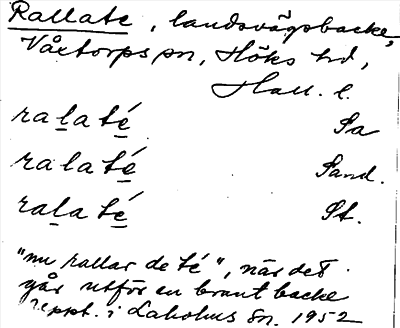 Rallate, landsvägsbacke,
Våxtorps sn, Höks hd,
Hall. l.
ralaté Sa
ralaté Sand.
ralaté St.
"nu rallar de té", när det
går utför en brant backe
uppt. i Laholms sn. 1952